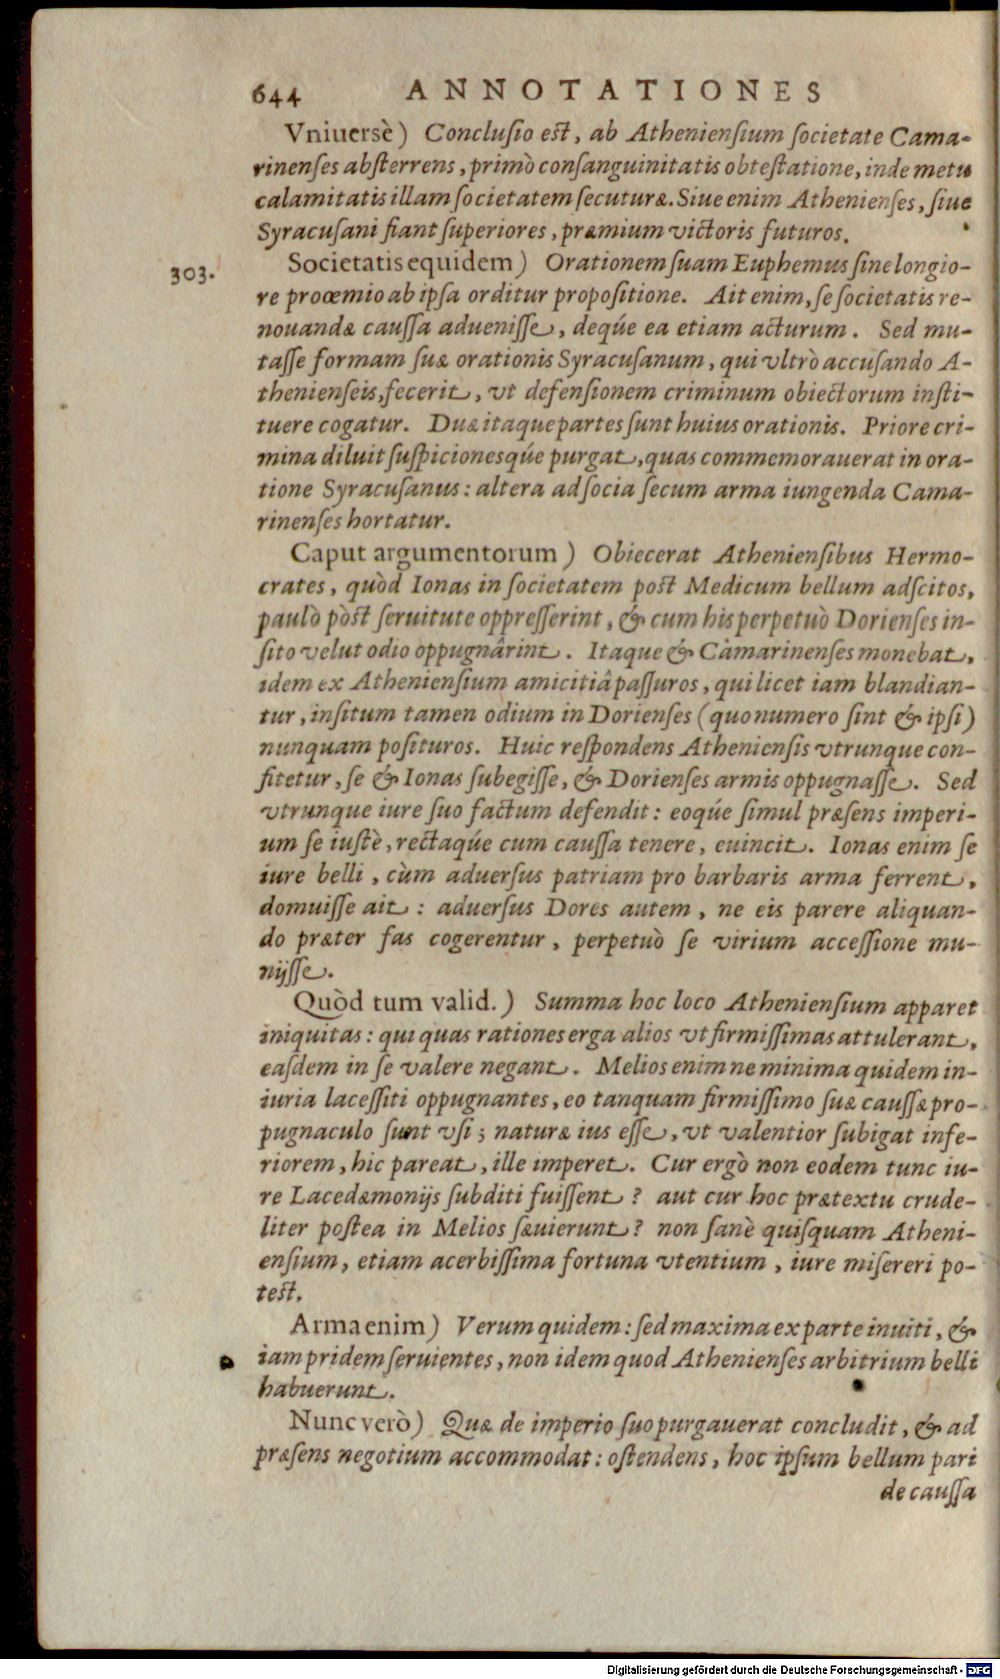 644 ANNOTATIONES
Vniuersè) Conclusio est, ab Atheniensium societate Cama-
rinenses absterrens, primò consanguinitatis obtestatione, inde metu
calamitatis illam societatem secuturæ. Siue enim Athenienses, siue
Syracusani fiant superiores, præmium victoris futuros.
303. Societatis equidem) Orationem suam Euphemus sine longio-
re proœmio ab ipsa orditur propositione. Ait enim, se societatis re-
nouandæ caussa aduenisse, deq́ue ea etiam acturum. Sed mu-
tasse formam suæ orationis Syracusanum, qui vltrò accusando A-
thenienseis, fecerit, vt defensionem criminum obiectorum insti-
tuere cogatur. Duæ itaque partes sunt huius orationis. Priore cri-
mina diluit suspicionesq́ue purgat, quas commemorauerat in ora-
tione Syracusanus: altera ad socia secum arma iungenda Cama-
rinenses hortatur.
Caput argumentorum) Obiecerat Atheniensibus Hermo-
crates, quòd Ionas in societatem post Medicum bellum adscitos,
paulò pòst seruitute oppresserint, & cum his perpetuò Dorienses in-
sito velut odio oppugnârint. Itaque & Camarinenses monebat,
idem ex Atheniensium amicitiâ passuros, qui licet iam blandian-
tur, insitum tamen odium in Dorienses (quo numero sint & ipsi)
nunquam posituros. Huic respondens Atheniensis vtrunque con-
fitetur, se & Ionas subegisse, & Dorienses armis oppugnasse. Sed
vtrunque iure suo factum defendit: eoq́ue simul præsens imperi-
um se iustè, rectaq́ue cum caussa tenere, euincit. Ionas enim se
iure belli, cùm aduersus patriam pro barbaris arma ferrent,
domuisse ait: aduersus Dores autem, ne eis parere aliquan-
do præter fas cogerentur, perpetuò se virium accessione mu-
nijsse.
Quòd tum valid.) Summa hoc loco Atheniensium apparet
iniquitas: qui quas rationes erga alios vt firmissimas attulerant,
easdem in se valere negant. Melios enim ne minima quidem in-
iuria lacessiti oppugnantes, eo tanquam firmissimo suæ caussæ pro-
pugnaculo sunt vsi; naturæ ius esse, vt valentior subigat infe-
riorem, hic pareat, ille imperet. Cur ergò non eodem tunc iu-
re Lacedæmonijs subditi fuissent? aut cur hoc prætextu crude-
liter postea in Melios sæuierunt? non sanè quisquam Atheni-
ensium, etiam acerbissima fortuna vtentium, iure misereri po-
test.
Arma enim) Verum quidem: sed maxima ex parte inuiti, &
iam pridem seruientes, non idem quod Athenienses arbitrium belli
habuerunt.
Nunc verò) Quæ de imperio suo purgauerat concludit, & ad
præsens negotium accommodat: ostendens, hoc ipsum bellum pari
de caussa
Digitalisierung gefördert durch die Deutsche Forschungsgemeinschaft - DFG